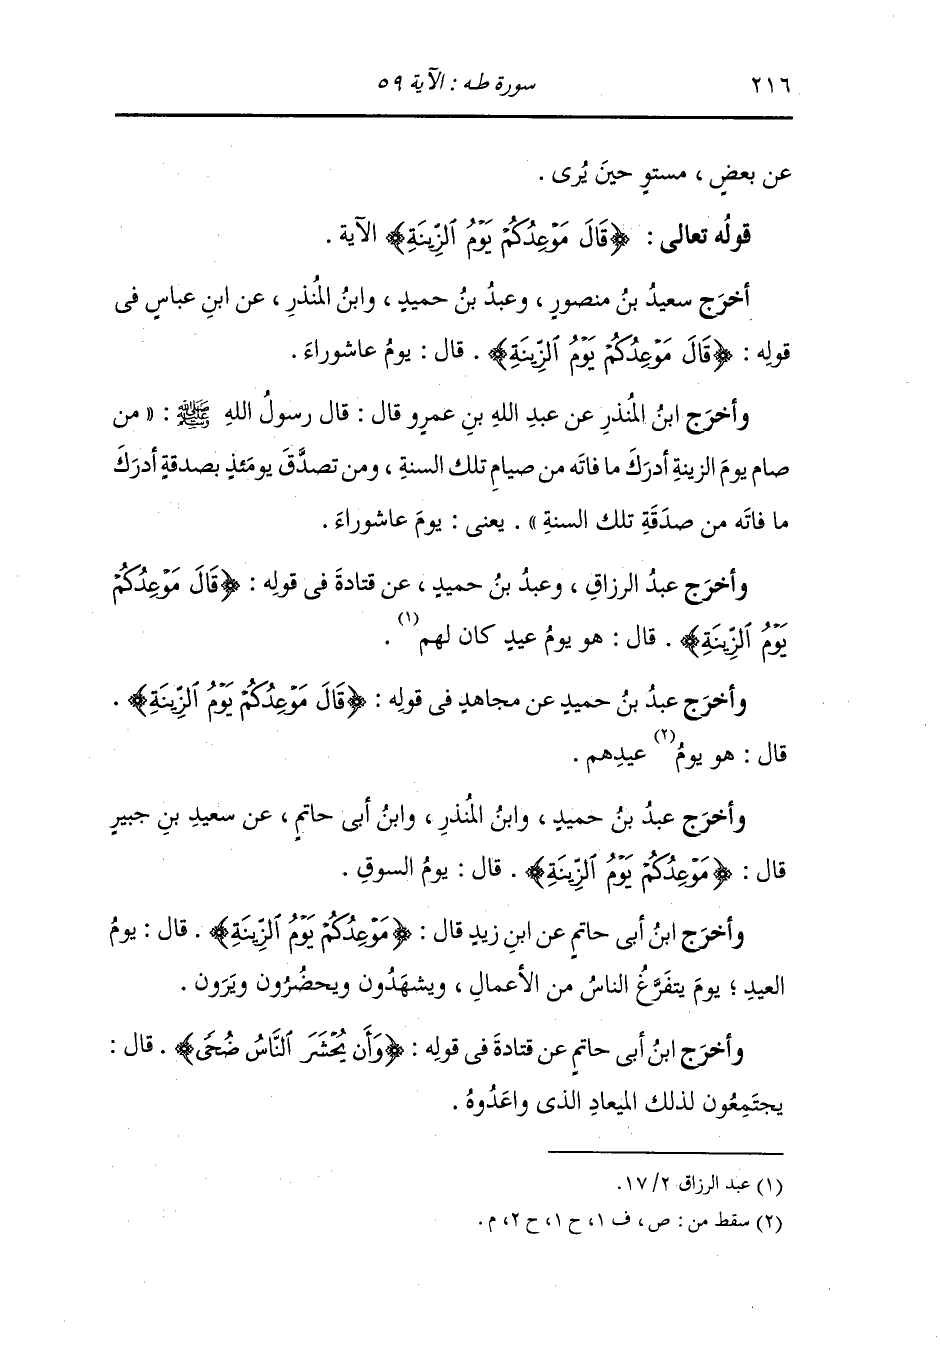 ٢١٦ سورة طه : الآية ٥٩
عن بعضٍ ، مستوٍ حينَ يُرى .
قولُه تعالى : ﴿قَالَ مَوْعِدُكُمْ يَوْمُ ٱلزِّينَةِ﴾ الآية .
أخرَج سعيدُ بنُ منصورٍ ، وعبدُ بنُ حميدٍ ، وابنُ المُنذرِ ، عن ابنِ عباسٍ فى
قولِه : ﴿قَالَ مَوْعِدُكُمْ يَوْمُ ٱلزِّينَةِ﴾ . قال : يومُ عاشوراءَ .
وأخرَج ابنُ المُنذرِ عن عبدِ اللهِ بنِ عمرٍو قال : قال رسولُ اللهِ ﷺ : « من
صام يومَ الزينةِ أدرَكَ ما فاتَه من صيامِ تلك السنةِ ، ومن تصدَّقَ يومَئذٍ بصدقةٍ أدرَكَ
ما فاتَه من صدَقَةِ تلك السنةِ » . يعنى : يومَ عاشوراءَ .
وأخرَج عبدُ الرزاقِ ، وعبدُ بنُ حميدٍ ، عن قتادةَ فى قولِه : ﴿قَالَ مَوْعِدُكُمْ
يَوْمُ ٱلزِّينَةِ﴾ . قال : هو يومُ عيدٍ كان لهم(١) .
وأخرَج عبدُ بنُ حميدٍ عن مجاهدٍ فى قولِه : ﴿قَالَ مَوْعِدُكُمْ يَوْمُ ٱلزِّينَةِ﴾ .
قال : هو يومُ(٢) عيدِهم .
وأخرَج عبدُ بنُ حميدٍ ، وابنُ المُنذرِ ، وابنُ أبى حاتمٍ ، عن سعيدِ بنِ جبيرٍ
قال : ﴿مَوْعِدُكُمْ يَوْمُ ٱلزِّينَةِ﴾ . قال : يومُ السوقِ .
وأخرَج ابنُ أبى حاتمٍ عن ابنِ زيدٍ قال : ﴿مَوْعِدُكُمْ يَوْمُ ٱلزِّينَةِ﴾ . قال : يومُ
العيدِ ؛ يومَ يتفَرَّغُ الناسُ من الأعمالِ ، ويشهَدُون ويحضُرُون ويَرَون .
وأخرَج ابنُ أبى حاتمٍ عن قتادةَ فى قولِه : ﴿وَأَن يُحْشَرَ ٱلنَّاسُ ضُحًى﴾ . قال :
يجتَمِعُون لذلك الميعادِ الذى واعَدُوهُ .
(١) عبد الرزاق ٢/ ١٧.
(٢) سقط من : ص، ف ١، ح ١، ح ٢، م.